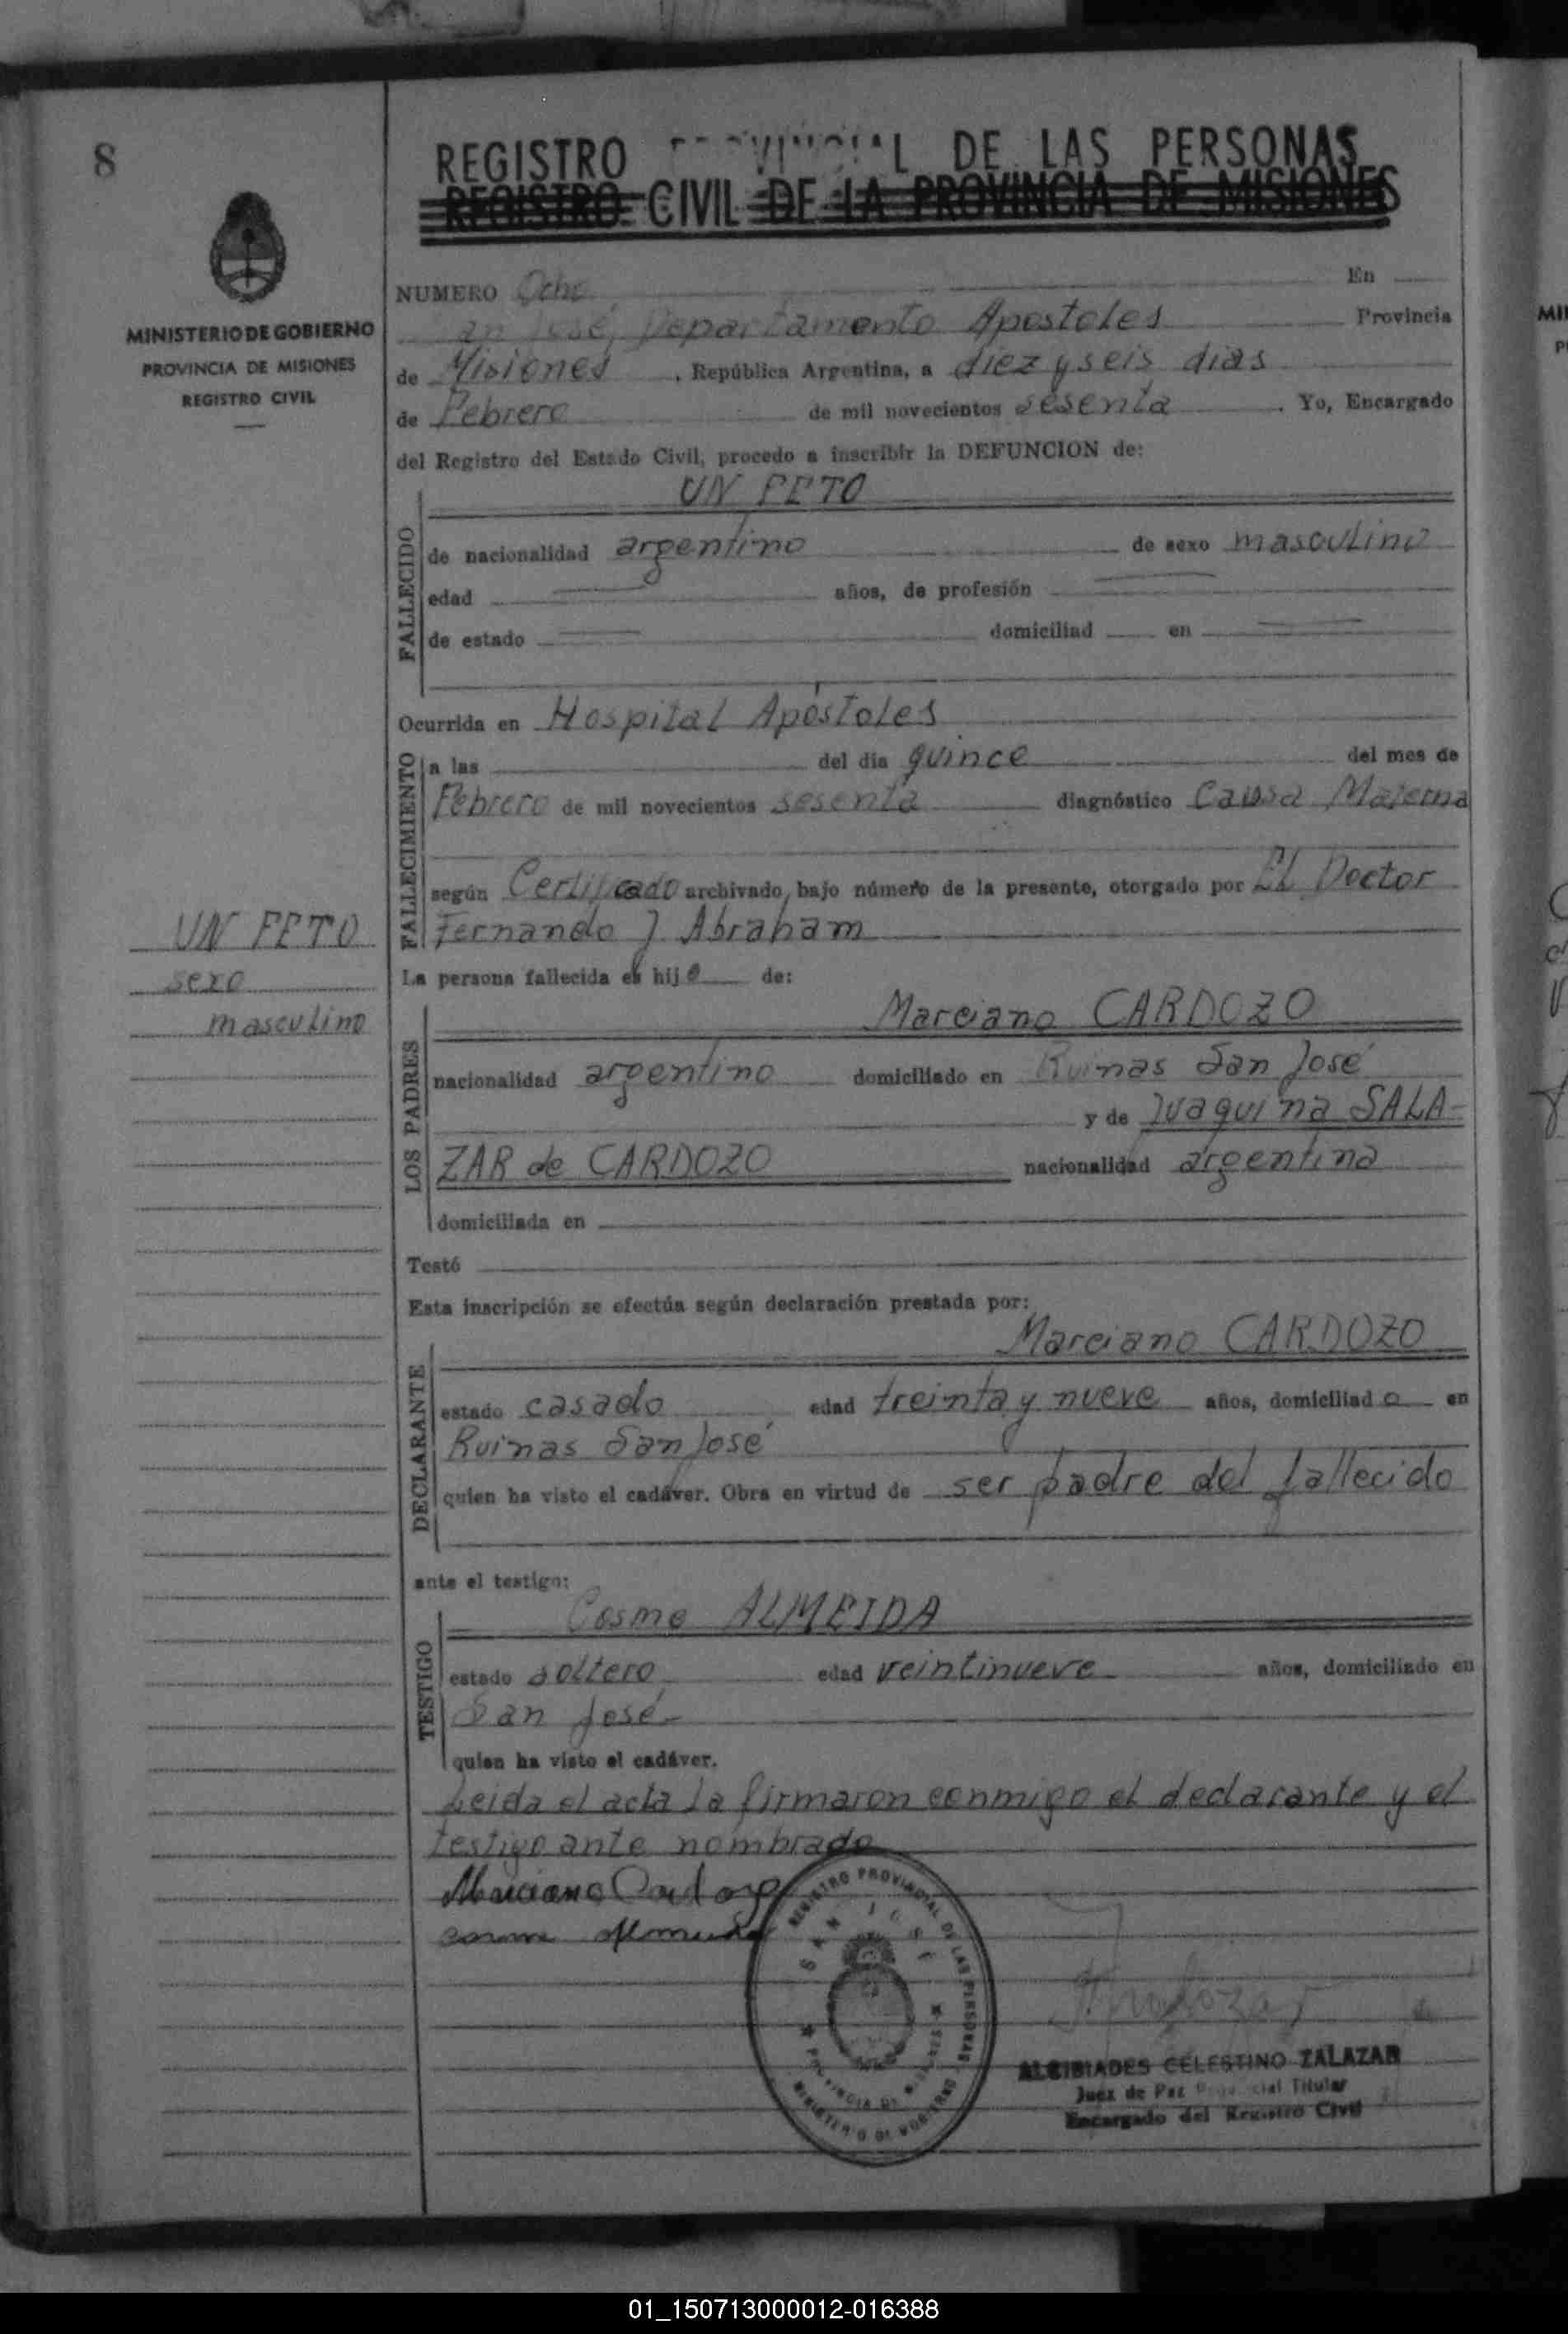 8
REGISTRO PROVINCIAL DE LAS PERSONAS
REGISTRO CIVIL DE LA PROVINCIA DE MISIONES
MINISTERIO DE GOBIERNO
PROVINCIA DE MISIONES
REGISTRO CIVIL
NUMERO Ocho En
San José, Departamento Apostoles Provincia
de Misiones, República Argentina, a diez y seis dias
de Febrero de mil novecientos sesenta. Yo, Encargado
del Registro del Estado Civil, procedo a inscribir la DEFUNCION de:
UN FETO
FALLECIDO
de nacionalidad argentino de sexo masculino
edad años, de profesión
de estado domiciliad en
Ocurrida en Hospital Apóstoles
FALLECIMIENTO
a las del dia quince del mes de
Febrero de mil novecientos sesenta diagnóstico Causa Materna
según Certificado archivado, bajo número de la presente, otorgado por El Doctor
Fernando J Abraham
UN FETO
sexo
masculino
La persona fallecida es hijo de:
LOS PADRES
Marciano CARDOZO
nacionalidad argentino domiciliado en Ruinas San José
y de Juaquina SALA-
ZAR de CARDOZO nacionalidad argentina
domiciliada en
Testó
Esta inscripción se efectúa según declaración prestada por:
DECLARANTE
Marciano CARDOZO
estado casado edad treinta y nueve años, domiciliado en
Ruinas San José
quien ha visto el cadáver. Obra en virtud de ser padre del fallecido
ante el testigo:
TESTIGO
Cosme ALMEIDA
estado soltero edad veintinueve años, domiciliado en
San José
quien ha visto el cadáver.
Leida el acta la firmaron conmigo el declarante y el
testigo ante nombrado
Marciano Cardozo
REGISTRO PROVINCIAL DE LAS PERSONAS
SAN JOSE
PROVINCIA DE MISIONES
MINISTERIO DE GOBIERNO
ALCIBIADES CELESTINO ZALAZAR
Juez de Paz Provincial Titular
Encargado del Registro Civil
01_150713000012-016388